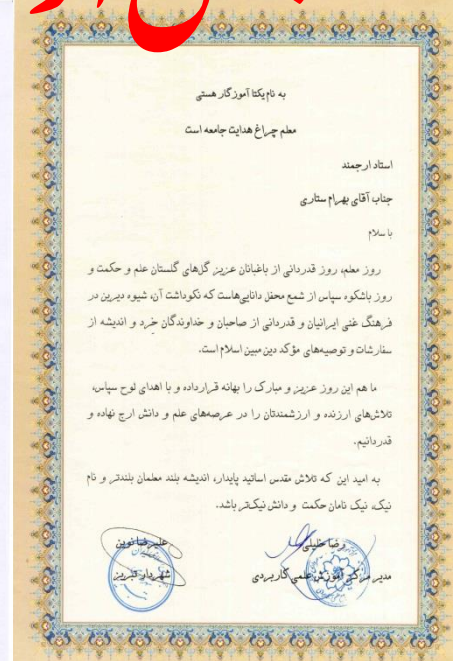 به نام یکتا آموزگار هستی
معلم چراغ هدایت جامعه است
استاد ارجمند
جناب آقای بهرام ستاری
با سلام
روز معلم، روز قدردانی از باغبانان عزیز گل‌های گلستان علم و حکمت و
روز باشکوه سپاس از شمع محفل دانایی‌هاست که نکوداشت آن، شیوه دیرین در
فرهنگ غنی ایرانیان و قدردانی از صاحبان و خداوندگان خرد و اندیشه از
سفارشات و توصیه‌های مؤکد دین مبین اسلام است.
ما هم این روز عزیز و مبارک را بهانه قرارداده و با اهدای لوح سپاس،
تلاش‌های ارزنده و ارزشمندتان را در عرصه‌های علم و دانش ارج نهاده و
قدردانیم.
به امید این که تلاش مقدس اساتید پایدار، اندیشه بلند معلمان بلندتر و نام
نیک، نیک نامان حکمت و دانش نیک‌تر باشد.
رضا خلیلی
علیرضا نوین
مدیر مرکز آموزش علمی کاربردی
شهردار تبریز